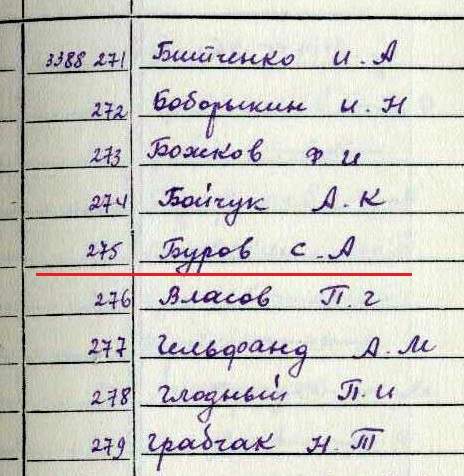 3388 271 Битченко И. А
272 Боборыкин И. Н
273 Божков Ф И
274 Бойчук А. К
275 Буров С. А
276 Власов П. Г
277 Гельфанд А. М
278 Глодный П. И
279 Грабчак Н. Т